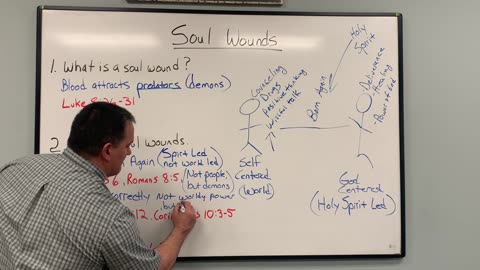 Soul Wounds
1. What is a soul wound?
Blood attracts predators (demons)
Luke 31
2. soul wounds.
Again (Spirit Led
not world led)
6, Romans 8:5, (Not people,
but demons)
correctly not worldly power
but
12, Cor 10:3-5
Counseling
Drugs
Positive thinking
Willful talk
Self
Centered
(World)
Born Again
Holy
Spirit
Deliverance
Healing
Power of God
God
Centered
(Holy Spirit Led)